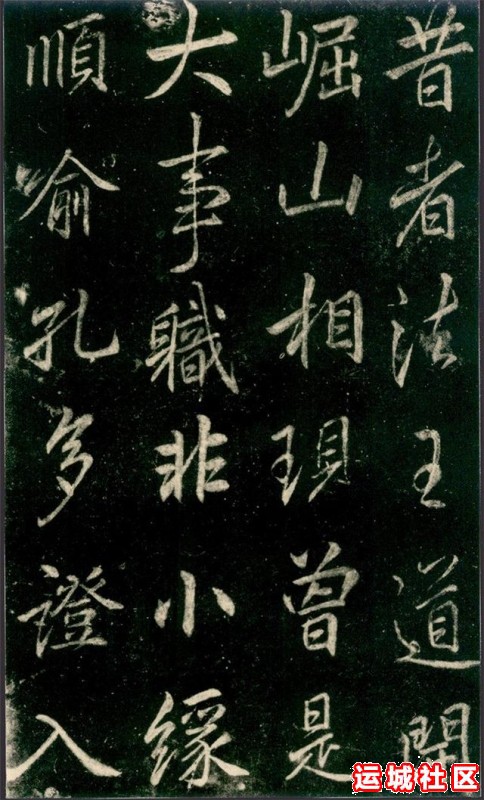 昔者法王道開
崛山相現曾是
大事軄非小緣
順喻孔多證入
运城社区